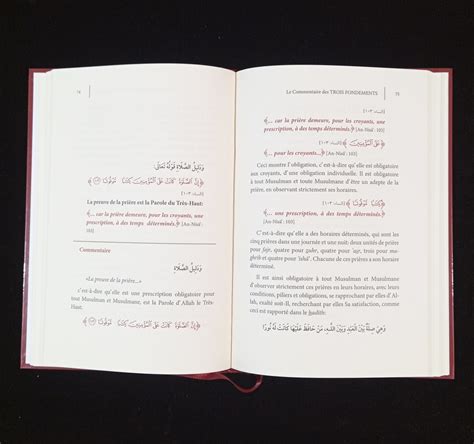 74
وَدَلِيلُ الصَّلَاةِ قَوْلُهُ تَعَالَى:
﴿إِنَّ الصَّلَوٰةَ كَانَتْ عَلَى الْمُؤْمِنِينَ كِتَٰبًا مَّوْقُوتًا ﴾
La preuve de la prière est la Parole du Très-Haut:
﴾... car la prière demeure, pour les croyants, une
prescription, à des temps déterminés.﴿
[An-Nisâ': 103]
Commentaire
وَدَلِيلُ الصَّلَاةِ
«La preuve de la prière...»
c'est-à-dire qu'elle est une prescription obligatoire pour
tout Musulman et Musulmane, est la Parole d'Allah le Très-
Haut.
﴿إِنَّ الصَّلَوٰةَ كَانَتْ عَلَى الْمُؤْمِنِينَ كِتَٰبًا مَّوْقُوتًا ﴾
Le Commentaire des TROIS FONDEMENTS 75
[النساء: ١٠٣]
﴾... car la prière demeure, pour les croyants, une
prescription, à des temps déterminés.﴿ [An-Nisâ': 103]
﴿عَلَى الْمُؤْمِنِينَ﴾ [النساء: ١٠٣]
﴾... pour les croyants...﴿ [An-Nisâ': 103]
Ceci montre l'obligation, c'est-à-dire qu'elle est
d'une obligation individuelle. Il est obligatoire à
tout Musulman et toute Musulmane d'être un adepte de la
prière, en observant strictement ses horaires.
﴿كِتَٰبًا مَّوْقُوتًا﴾ [النساء: ١٠٣]
﴾... une prescription, à des temps déterminés.﴿
[An-Nisâ': 103]
C'est-à-dire qu'elle a des horaires déterminés, qui sont les
cinq prières dans une journée et une nuit: deux unités de prière
pour fajr, quatre pour zuhr, quatre pour 'asr, trois pour
maghrib et quatre pour 'ishâ'. Chacune de ces prières a son
horaire déterminé.
Il est aussi obligatoire à tout Musulman et Musulmane
d'observer strictement ces prières en leurs horaires, avec
leurs conditions, piliers et obligations, se rapprochant par elles d'Al-
lah, exalté soit-Il, recherchant par elles Sa satisfaction, comme
ont est rapporté dans le hadîth:
وَهِيَ صِلَةٌ بَيْنَ الْعَبْدِ وَبَيْنَ اللهِ، مَنْ حَافَظَ عَلَيْهَا كَانَتْ لَهُ نُورًا